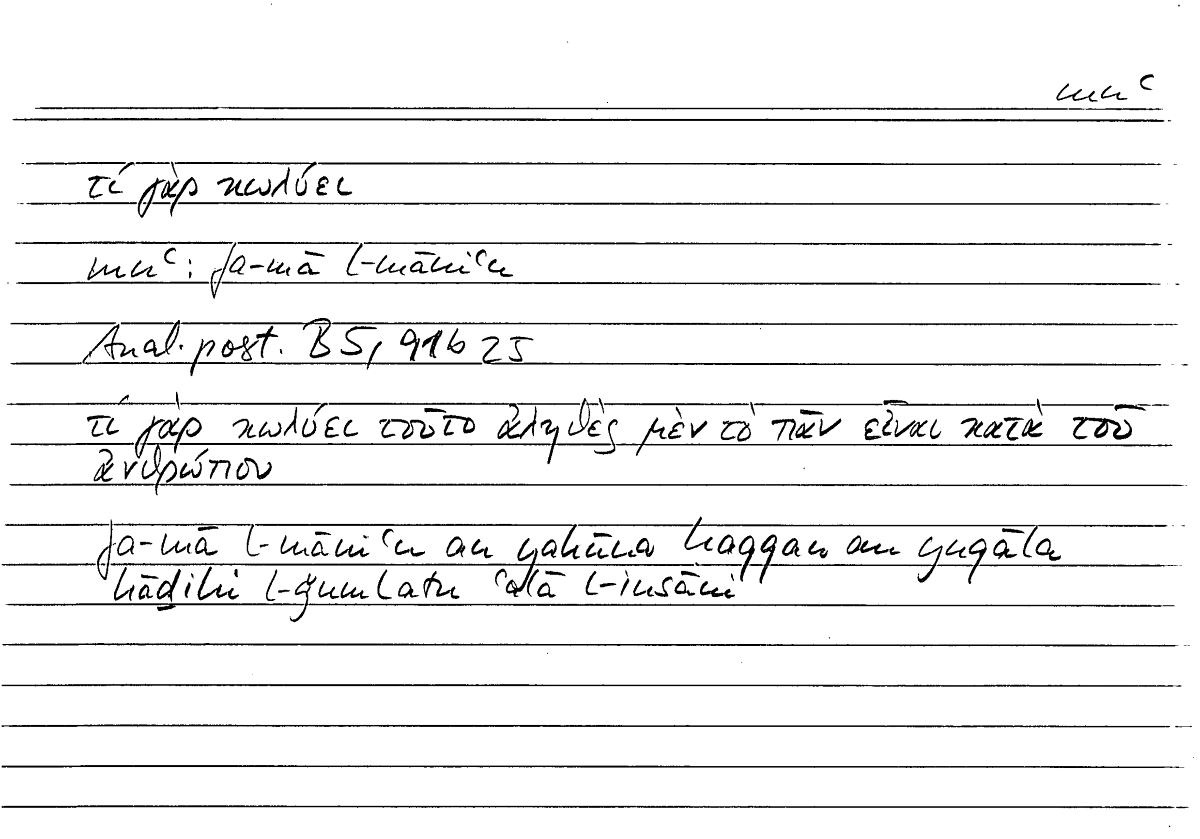 mnʿ
τί γὰρ κωλύει
mnʿ: fa-mā l-māniʿu
Anal. post. B5, 91b25
τί γὰρ κωλύει τοῦτο ἀληθὲς μὲν τὸ πᾶν εἶναι κατὰ τοῦ
ἀνθρώπου
fa-mā l-māniʿu an yakūna ḥaqqan an yuqāla
hāḏihi l-ǧumlatu ʿalā l-insāni